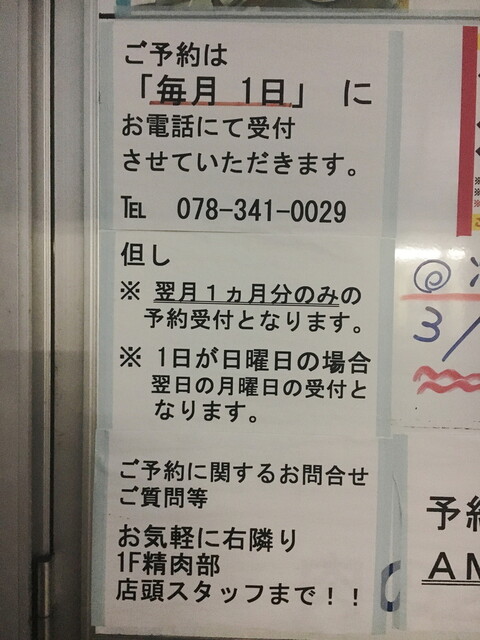 ご予約は
「毎月 1日」 に
お電話にて受付
させていただきます。
℡ 078-341-0029
但し
※ 翌月１ヵ月分のみの
予約受付となります。
※ 1日が日曜日の場合
翌日の月曜日の受付と
なります。
ご予約に関するお問合せ
ご質問等
お気軽に右隣り
1F精肉部
店頭スタッフまで！！
@
3/
予約
AM